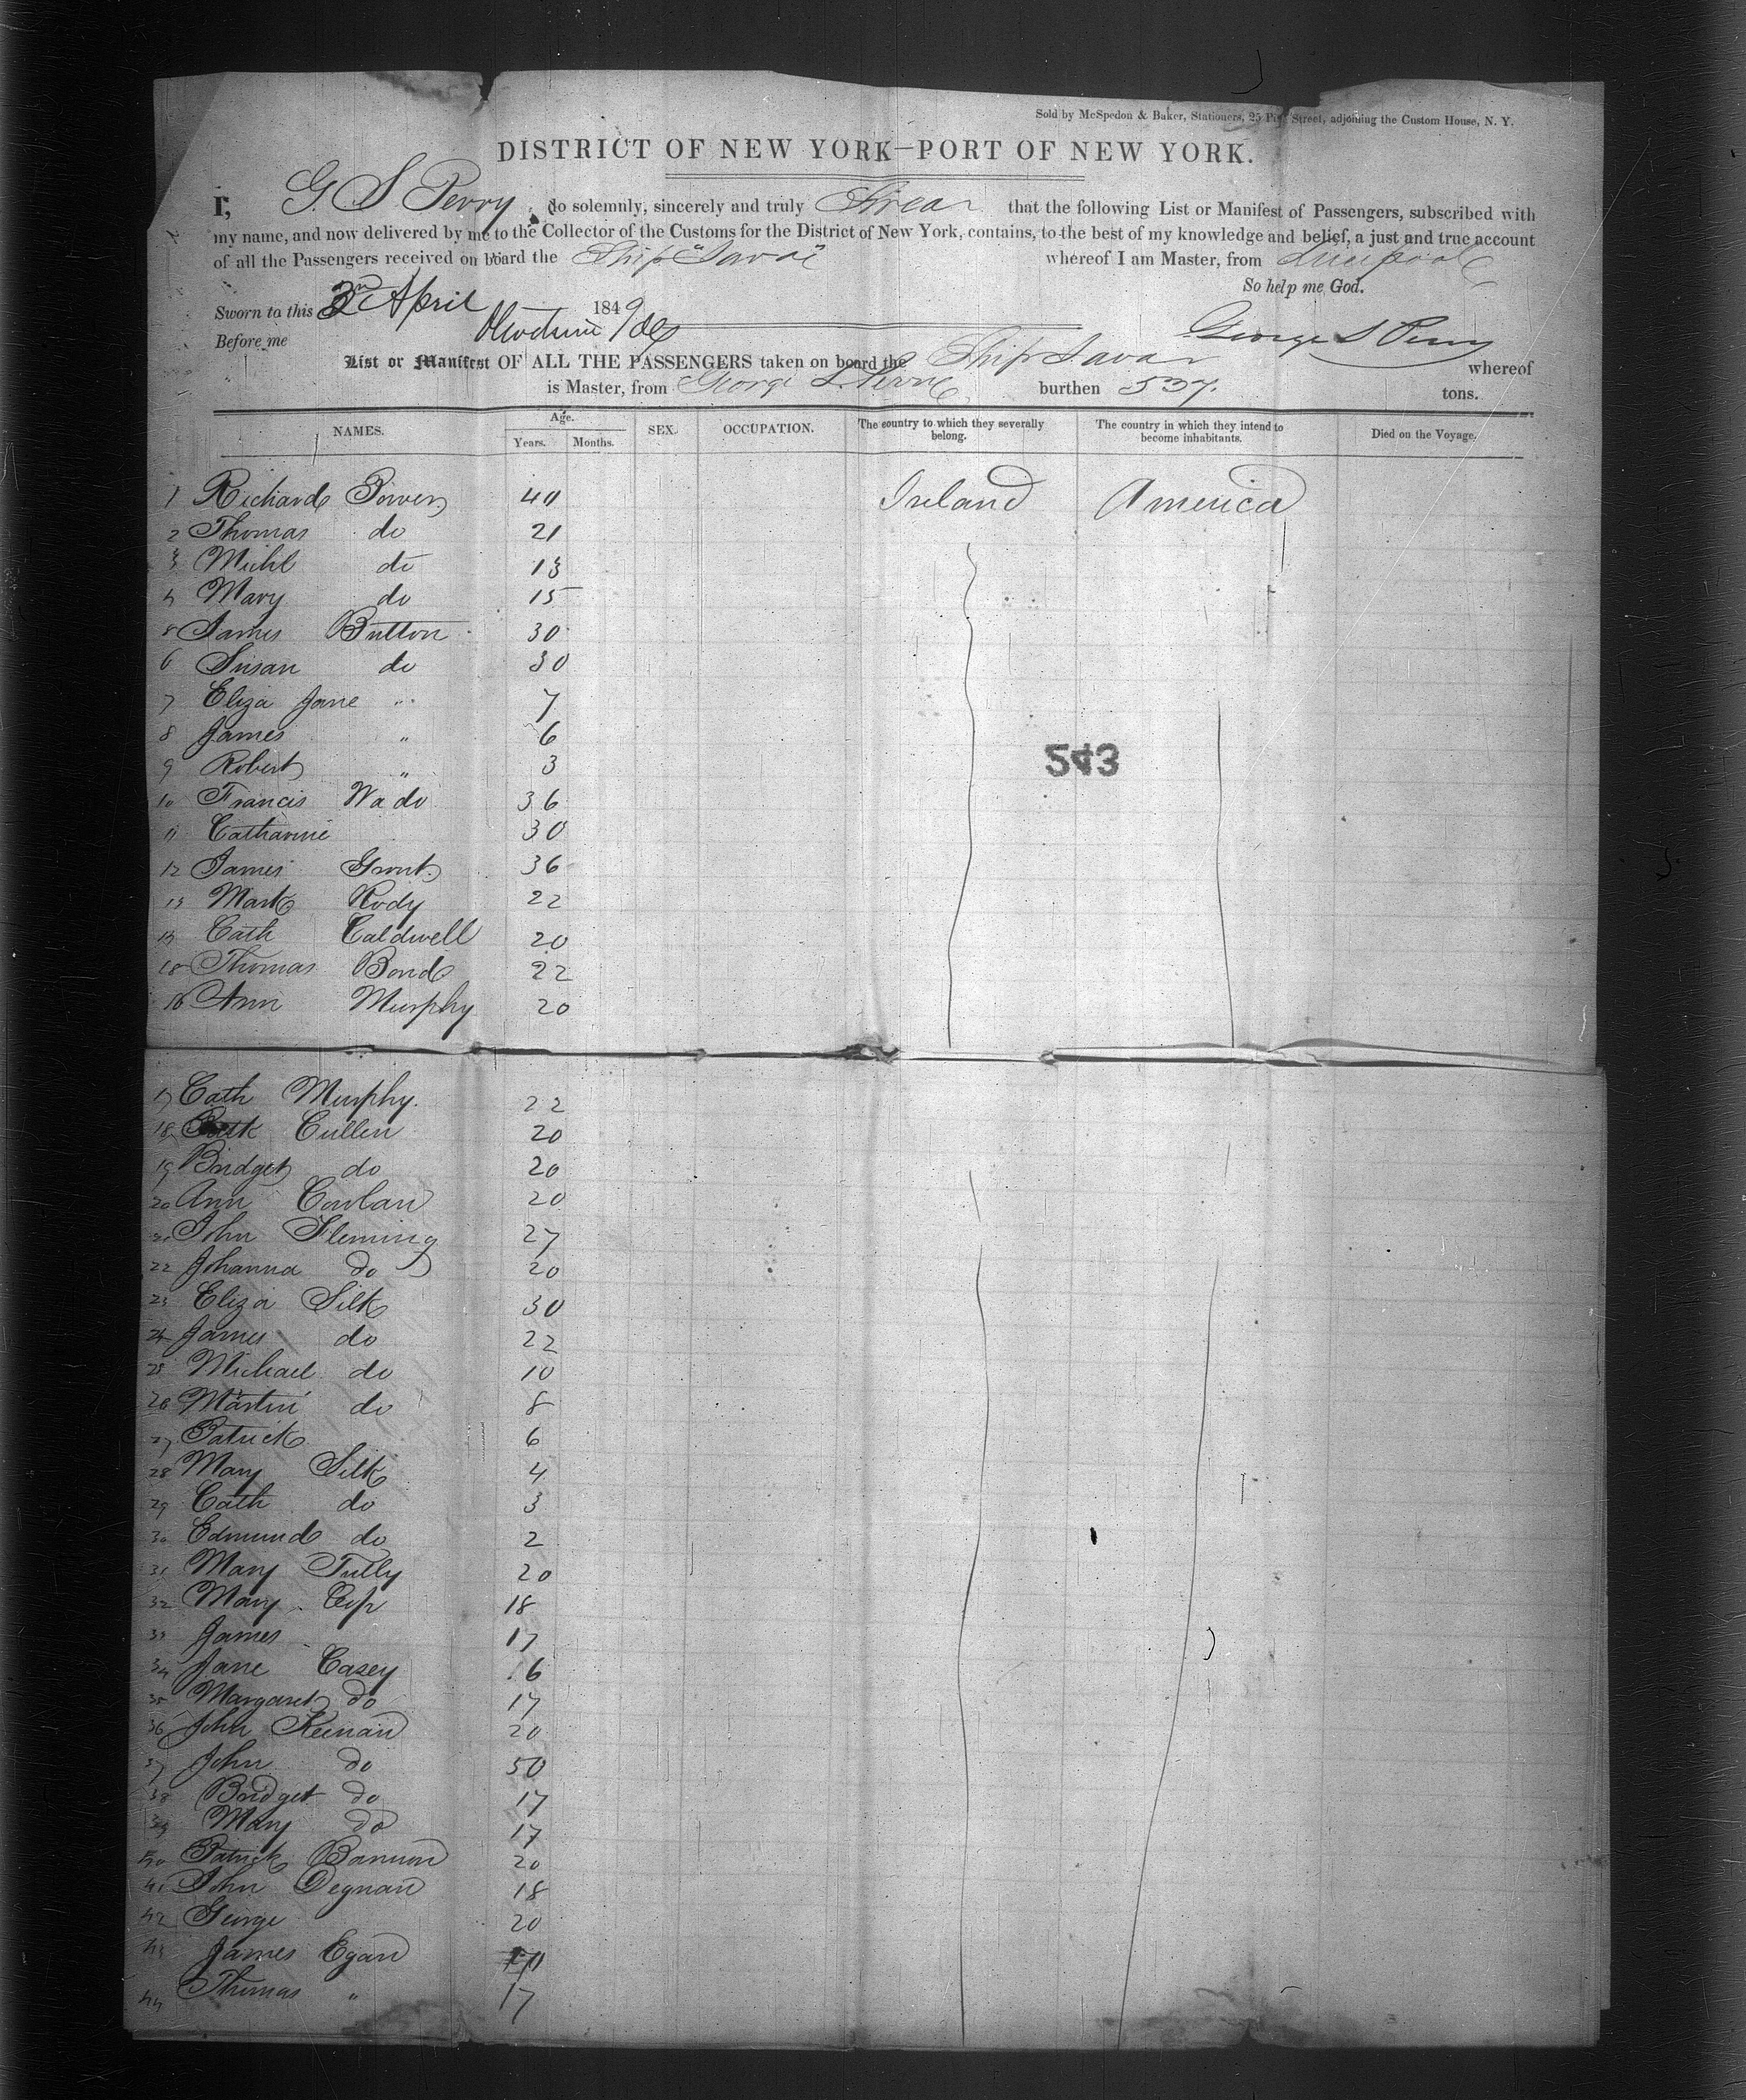 Sold by McSpedon & Baker, Stationers, 25 Pine Street, adjoining the Custom House, N. Y.
DISTRICT OF NEW YORK—PORT OF NEW YORK.
I, G. S. Perry do solemnly, sincerely and truly Swear that the following List or Manifest of Passengers, subscribed with
my name, and now delivered by me to the Collector of the Customs for the District of New York, contains, to the best of my knowledge and belief, a just and true account
of all the Passengers received on board the Ship "Javar" whereof I am Master, from Liverpool
So help me God.
Sworn to this 3rd April 1849
Before me George S Perry
List or Manifest OF ALL THE PASSENGERS taken on board the Ship Javar whereof
is Master, from George S Perry burthen 537. tons.
NAMES. Age. Years. Months. SEX. OCCUPATION. The country to which they severally belong. The country in which they intend to become inhabitants. Died on the Voyage.
1 Richard Power 40 Ireland America
2 Thomas do 21
3 Michl do 13
4 Mary do 15
5 James Button 30
6 Susan do 30
7 Eliza Jane " 7
8 James " 6
9 Robert " 3
543
10 Francis Wade 36
11 Catharine 30
12 James Grant 36
13 Mark Rody 22
14 Cath Caldwell 20
15 Thomas Bond 22
16 Ann Murphy 20
17 Cath Murphy. 22
18 Patk Cullen 20
19 Bridget do 20
20 Ann Conlan 20
21 John Fleming 27
22 Johanna do 20
23 Eliza Silk 30
24 James do 22
25 Michael do 10
26 Martin do 8
27 Patrick 6
28 Mary Silk 4
29 Cath do 3
30 Edmund do 2
31 Mary Tully 20
32 Mary 18
33 James 17
34 Jane Casey 16
35 Margaret do 17
36 John Keenan 20
37 John do 50
38 Bridget do 17
39 Mary do 17
40 Patrick Bannon 20
41 John Degnan 18
42 George 20
43 James Egan
44 Thomas " 17